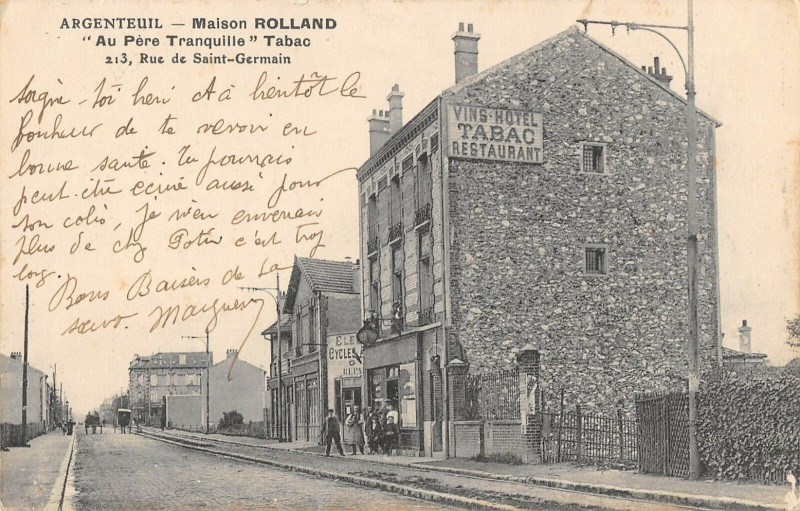 ARGENTEUIL — Maison ROLLAND
"Au Père Tranquille" Tabac
213, Rue de Saint-Germain
Soigne-toi bien et à bientôt le
bonheur de te revoir en
bonne santé. Tu pourrais
peut-être écrire aussi pour
ton colis, je n'en enverrai
plus de chez Potin c'est trop
long.
Bons Baisers de ta
sœur. Marguerite
VINS-HÔTEL
TABAC
RESTAURANT
CYCLES